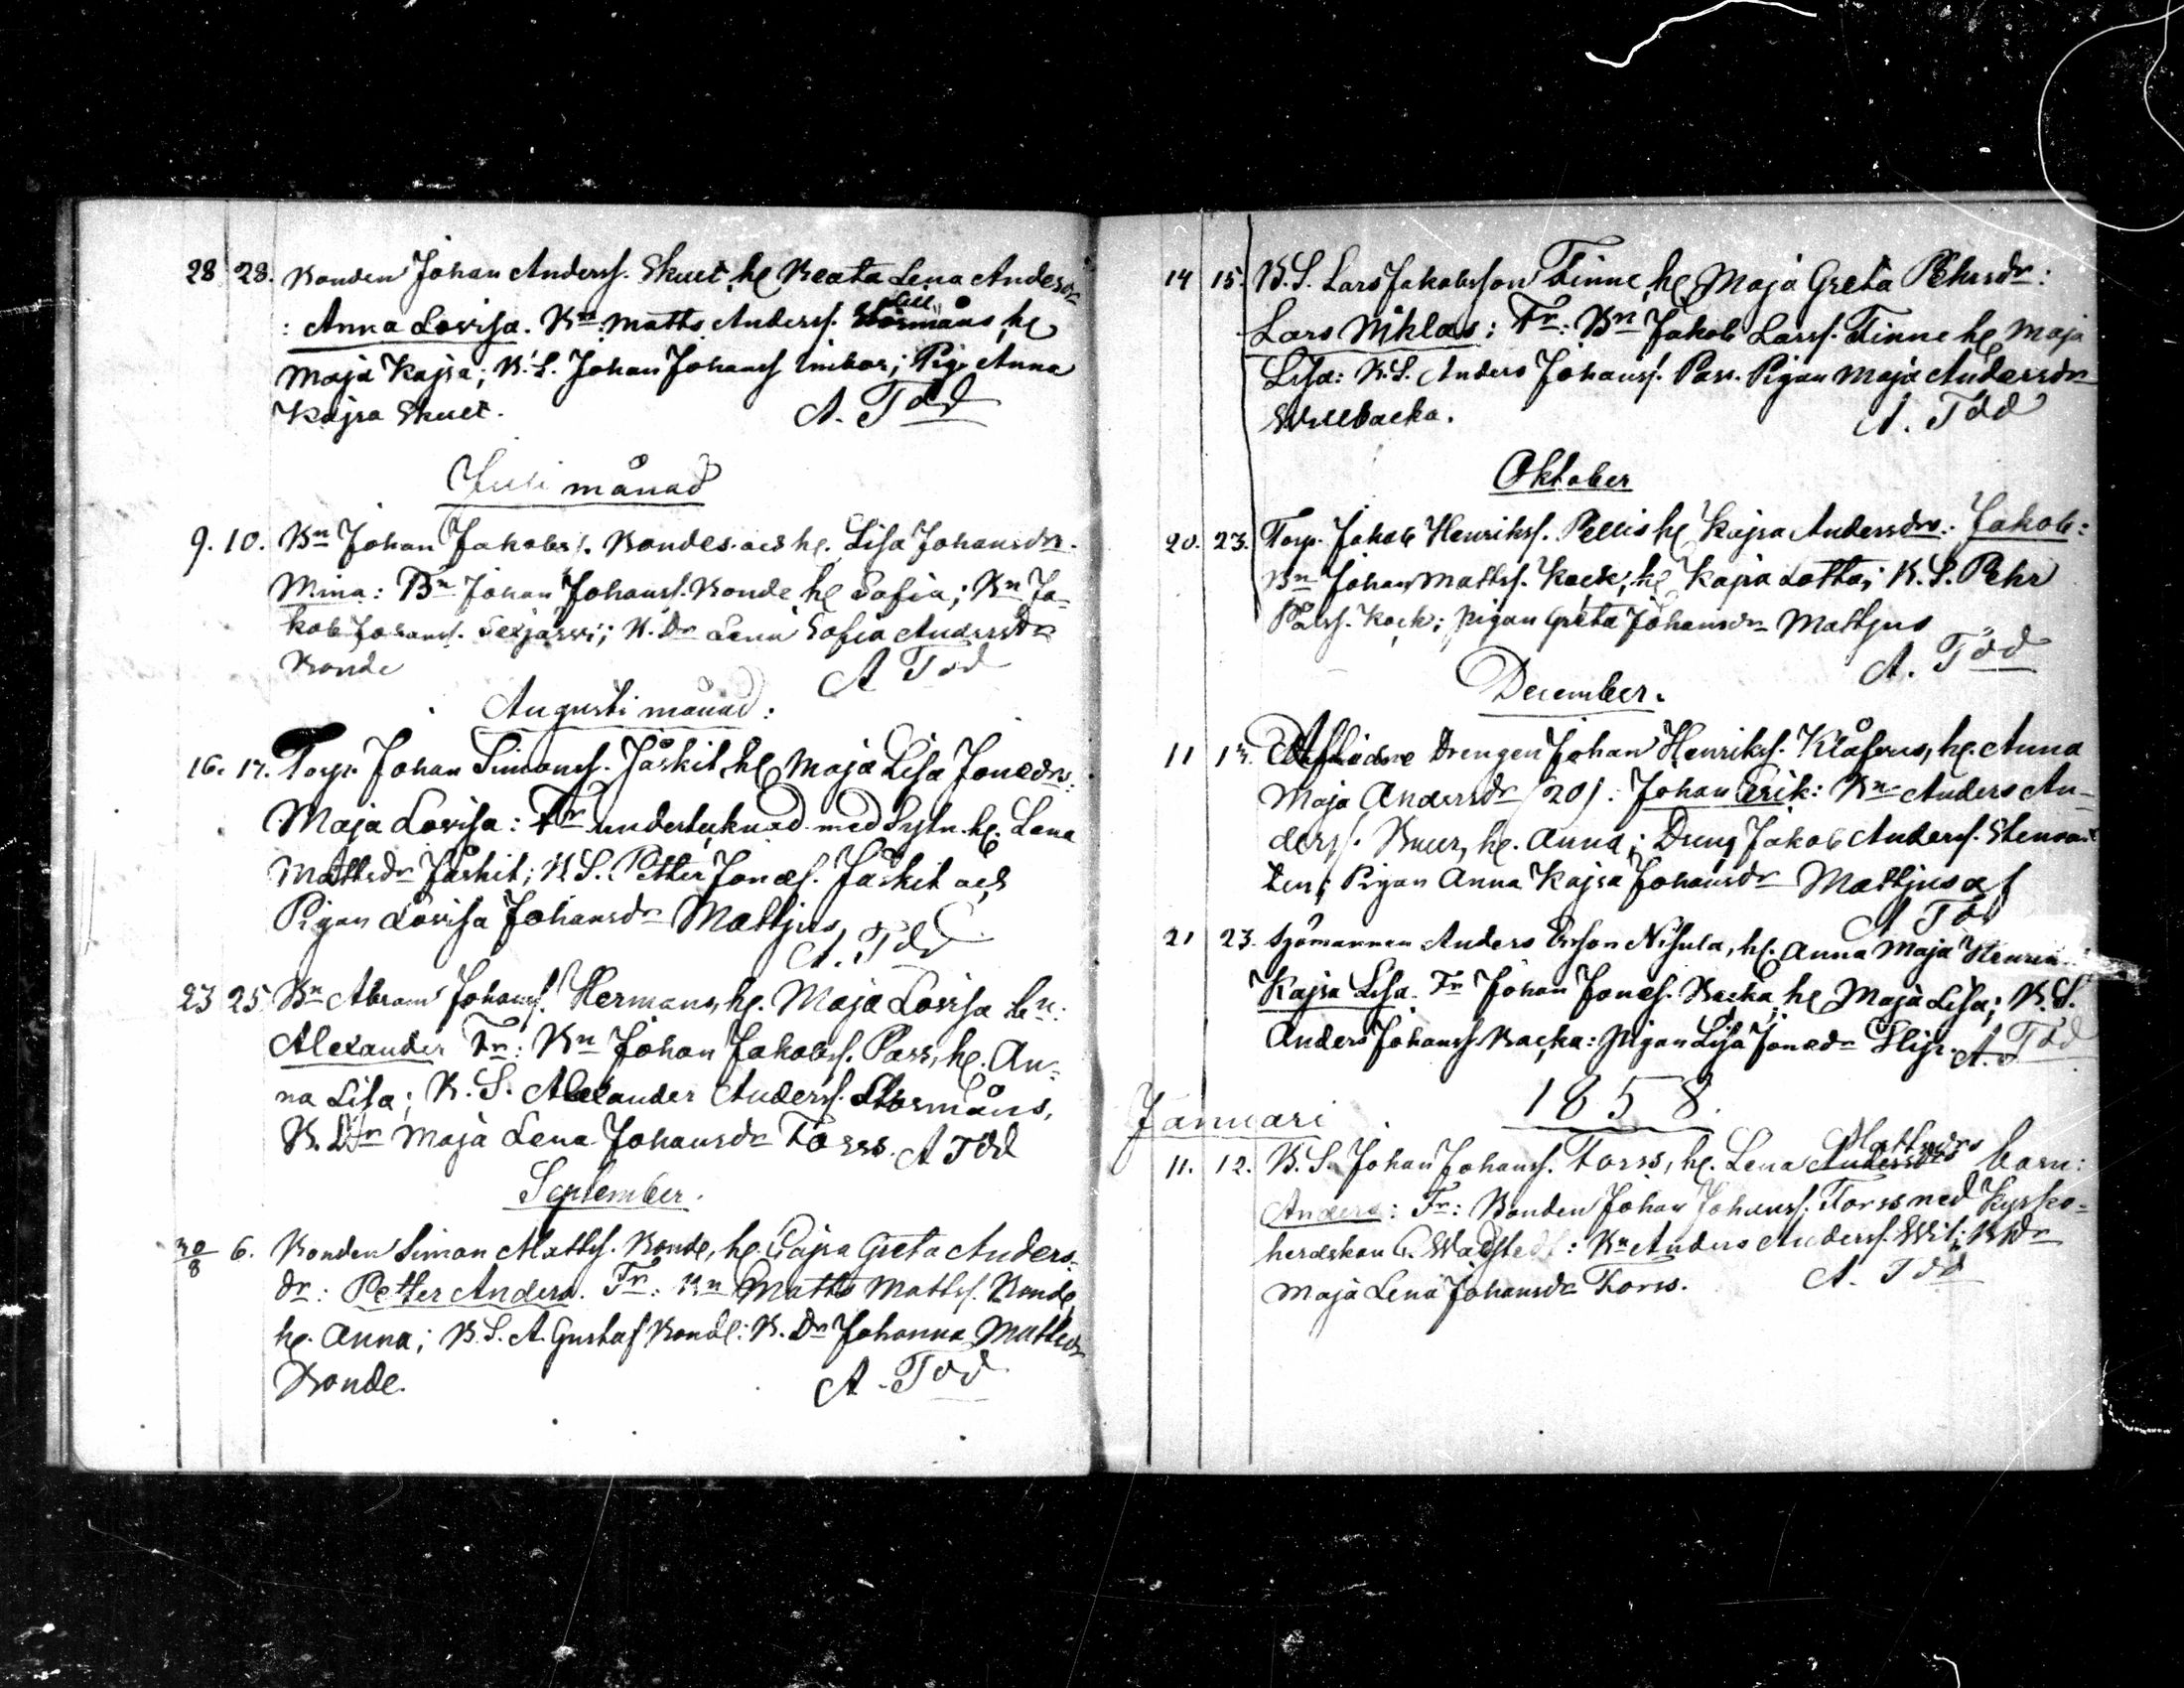 28 28. Bonden Johan Anderss. Skuet, h. Beata Lena Andersdr
: Anna Lovisa. Bn: Matts Anderss. Lill Stormåns, h.
Maja Kajsa; B. S. Johan Johanss Imbor; Pig. Anna
Kajsa Skuet. A. Töd
Juli månad
9. 10. Bn Johan Jakobss. Bondes och h. Lisa Johansdr.
Mina: Bn Johan Johanss. Bonde h. Sofia; Bn Ja-
kob Johanss. B. Dr Lena Sofia Andersdr
Bonde A Töd
Augusti månad:
16. 17. Torp. Johan Simonss. Jåskit, h. Maja Lisa Jonædr:
Maja Lovisa: Fr undertecknad med Sytn. h. Lena
Mattsdr Jåskit; B. S. Petter Jonæs. Jåskit och
Pigan Lovisa Johansdr Mattjus, A. Töd
23 25 Bn Abram Johanss. Hermans, h. Maja Lovisa bn:
Alexander Fr: Bn Johan Jakobss. Pass, h. An-
na Lisa; B. S. Alexander Anderss. Stormåns,
B. Dr Maja Lena Johansdr Forss. A Töd
September.
30/8 6. Bonden Simon Mattss. Bonde, h. Cajsa Greta Anders-
dr: Petter Anders. Fr: Bn Matts Mattss. Bonde,
h. Anna; B. S. A. Gustaf Bonde: B. Dr Johanna Mattsdr
Bonde. A. Töd
14 15. B. S. Lars Jakobsson Finne, h. Maja Greta Pehrsdr:
Lars Niklas: Fr: Bn Jakob Larss. Finne h. Maja
Lisa: B. S. Anders Johanss. Pass. Pigan Maja Andersdr
Willbacka. A. Töd
Oktober
20. 23. Torp. Jakob Henrikss. Pellis h. Kajsa Andersdr: Jakob:
Bn Johan Mattss. Kock, h. Kajsa Lotta; B. S. Pehr
Pålss. Kock; pigan Greta Johansdr Mattjus
A. Töd
December.
11 13. Aflidne Drengen Johan Henrikss. Klåfus, h. Anna
Maja Andersdr (20). Johan Erik: Bn Anders An-
derss. Buer, h. Anna; Dreng Jakob Anderss.
Pigan Anna Kajsa Johansdr Mattjus af
A Töd
21 23. Sjömannen Anders Ersson Nisula, h. Anna Maja
Kajsa Lisa. Fr Johan Jonæs. Backa, h. Maja Lisa; B. S.
Anders Johanss. Backa: pigan Lisa Jonædr Slip. A. Töd
1858.
Januari
11. 12. B. S. Johan Johanss. Forss, h. Lena Andersdr Mattsdr barn:
Anders: Fr: Bonden Johan Johanss. Forss med Kyrko-
herdskan C. Wadstedt: Bn Anders Anderss. Wit; B Dr
Maja Lena Johansdr Forss. A. Töd